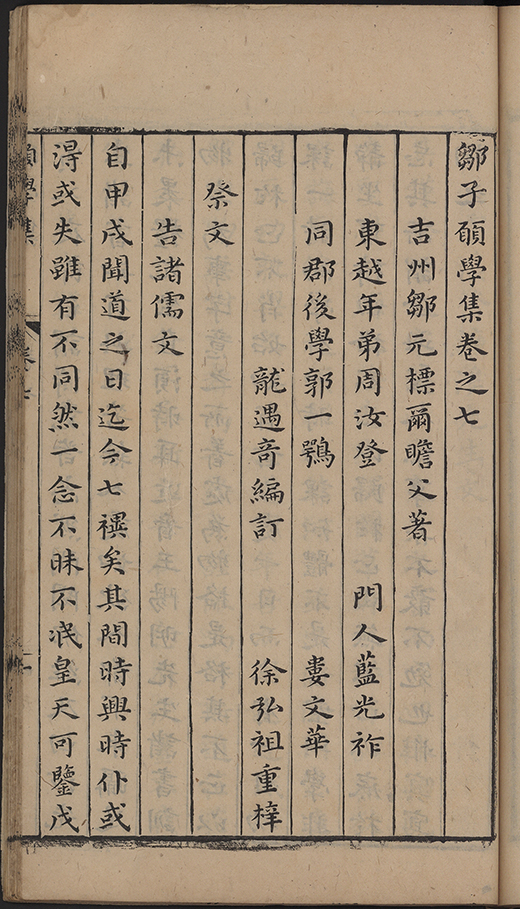 鄒子願學集卷之七
吉州鄒元標爾瞻父著
東越年弟周汝登 門人藍光祚
同郡後學郭一鶚 婁文華
龍遇奇編訂 徐弘祖重梓
祭文
告諸儒文
自甲戌聞道之日迄今七禩矣其間時興時仆或
淂或失雖有不同然一念不昧不泯皇天可鑒戊
願學集 卷七 一